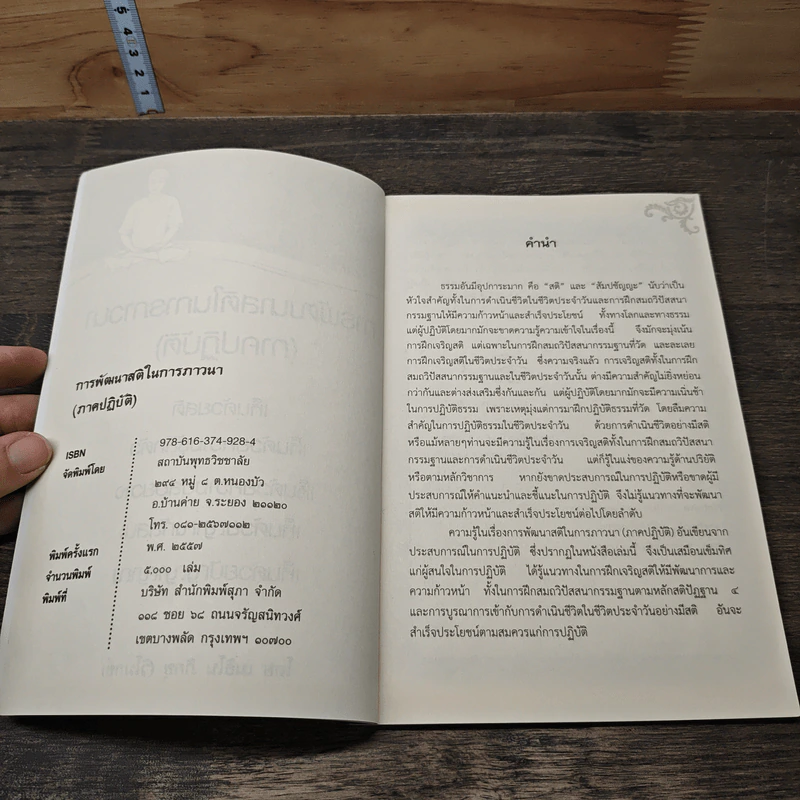 5 4 3 2 1
การพัฒนาสติในการภาวนา
(ภาคปฏิบัติ)
ISBN 978-616-374-928-4
จัดพิมพ์โดย สถาบันพุทธวิชชาลัย
๒๙๔ หมู่ ๘ ต.หนองบัว
อ.บ้านค่าย จ.ระยอง ๒๑๑๒๐
โทร. ๐๘๑-๒๕๖๗๑๑๒
พิมพ์ครั้งแรก พ.ศ. ๒๕๕๗
จำนวนพิมพ์ ๕,๐๐๐ เล่ม
พิมพ์ที่ บริษัท สำนักพิมพ์สุภา จำกัด
๑๑๘ ซอย ๖๘ ถนนจรัญสนิทวงศ์
เขตบางพลัด กรุงเทพฯ ๑๐๗๐๐
คำนำ
ธรรมอันมีอุปการะมาก คือ "สติ" และ "สัมปชัญญะ" นับว่าเป็น
หัวใจสำคัญทั้งในการดำเนินชีวิตในชีวิตประจำวันและการฝึกสมถวิปัสสนา
กรรมฐานให้มีความก้าวหน้าและสำเร็จประโยชน์ ทั้งทางโลกและทางธรรม
แต่ผู้ปฏิบัติโดยมากมักจะขาดความรู้ความเข้าใจในเรื่องนี้ จึงมักจะมุ่งเน้น
การฝึกเจริญสติ แต่เฉพาะในการฝึกสมถวิปัสสนากรรมฐานที่วัด และละเลย
การฝึกเจริญสติในชีวิตประจำวัน ซึ่งความจริงแล้ว การเจริญสติทั้งในการฝึก
สมถวิปัสสนากรรมฐานและในชีวิตประจำวันนั้น ต่างมีความสำคัญไม่ยิ่งหย่อน
กว่ากันและต่างส่งเสริมซึ่งกันและกัน แต่ผู้ปฏิบัติโดยมากมักจะมีความเนิ่นช้า
ในการปฏิบัติธรรม เพราะเหตุมุ่งแต่การมาฝึกปฏิบัติธรรมที่วัด โดยลืมความ
สำคัญในการปฏิบัติธรรมในชีวิตประจำวัน ด้วยการดำเนินชีวิตอย่างมีสติ
หรือแม้หลายๆท่านจะมีความรู้ในเรื่องการเจริญสติทั้งในการฝึกสมถวิปัสสนา
กรรมฐานและการดำเนินชีวิตประจำวัน แต่ก็รู้ในแง่ของความรู้ด้านปริยัติ
หรือตามหลักวิชาการ หากยังขาดประสบการณ์ในการปฏิบัติหรือขาดผู้มี
ประสบการณ์ให้คำแนะนำและชี้แนะในการปฏิบัติ จึงไม่รู้แนวทางที่จะพัฒนา
สติให้มีความก้าวหน้าและสำเร็จประโยชน์ต่อไปโดยลำดับ
ความรู้ในเรื่องการพัฒนาสติในการภาวนา (ภาคปฏิบัติ) อันเขียนจาก
ประสบการณ์ในการปฏิบัติ ซึ่งปรากฏในหนังสือเล่มนี้ จึงเป็นเสมือนเข็มทิศ
แก่ผู้สนใจในการปฏิบัติ ได้รู้แนวทางในการฝึกเจริญสติให้มีพัฒนาการและ
ความก้าวหน้า ทั้งในการฝึกสมถวิปัสสนากรรมฐานตามหลักสติปัฏฐาน ๔
และการบูรณาการเข้ากับการดำเนินชีวิตในชีวิตประจำวันอย่างมีสติ อันจะ
สำเร็จประโยชน์ตามสมควรแก่การปฏิบัติ